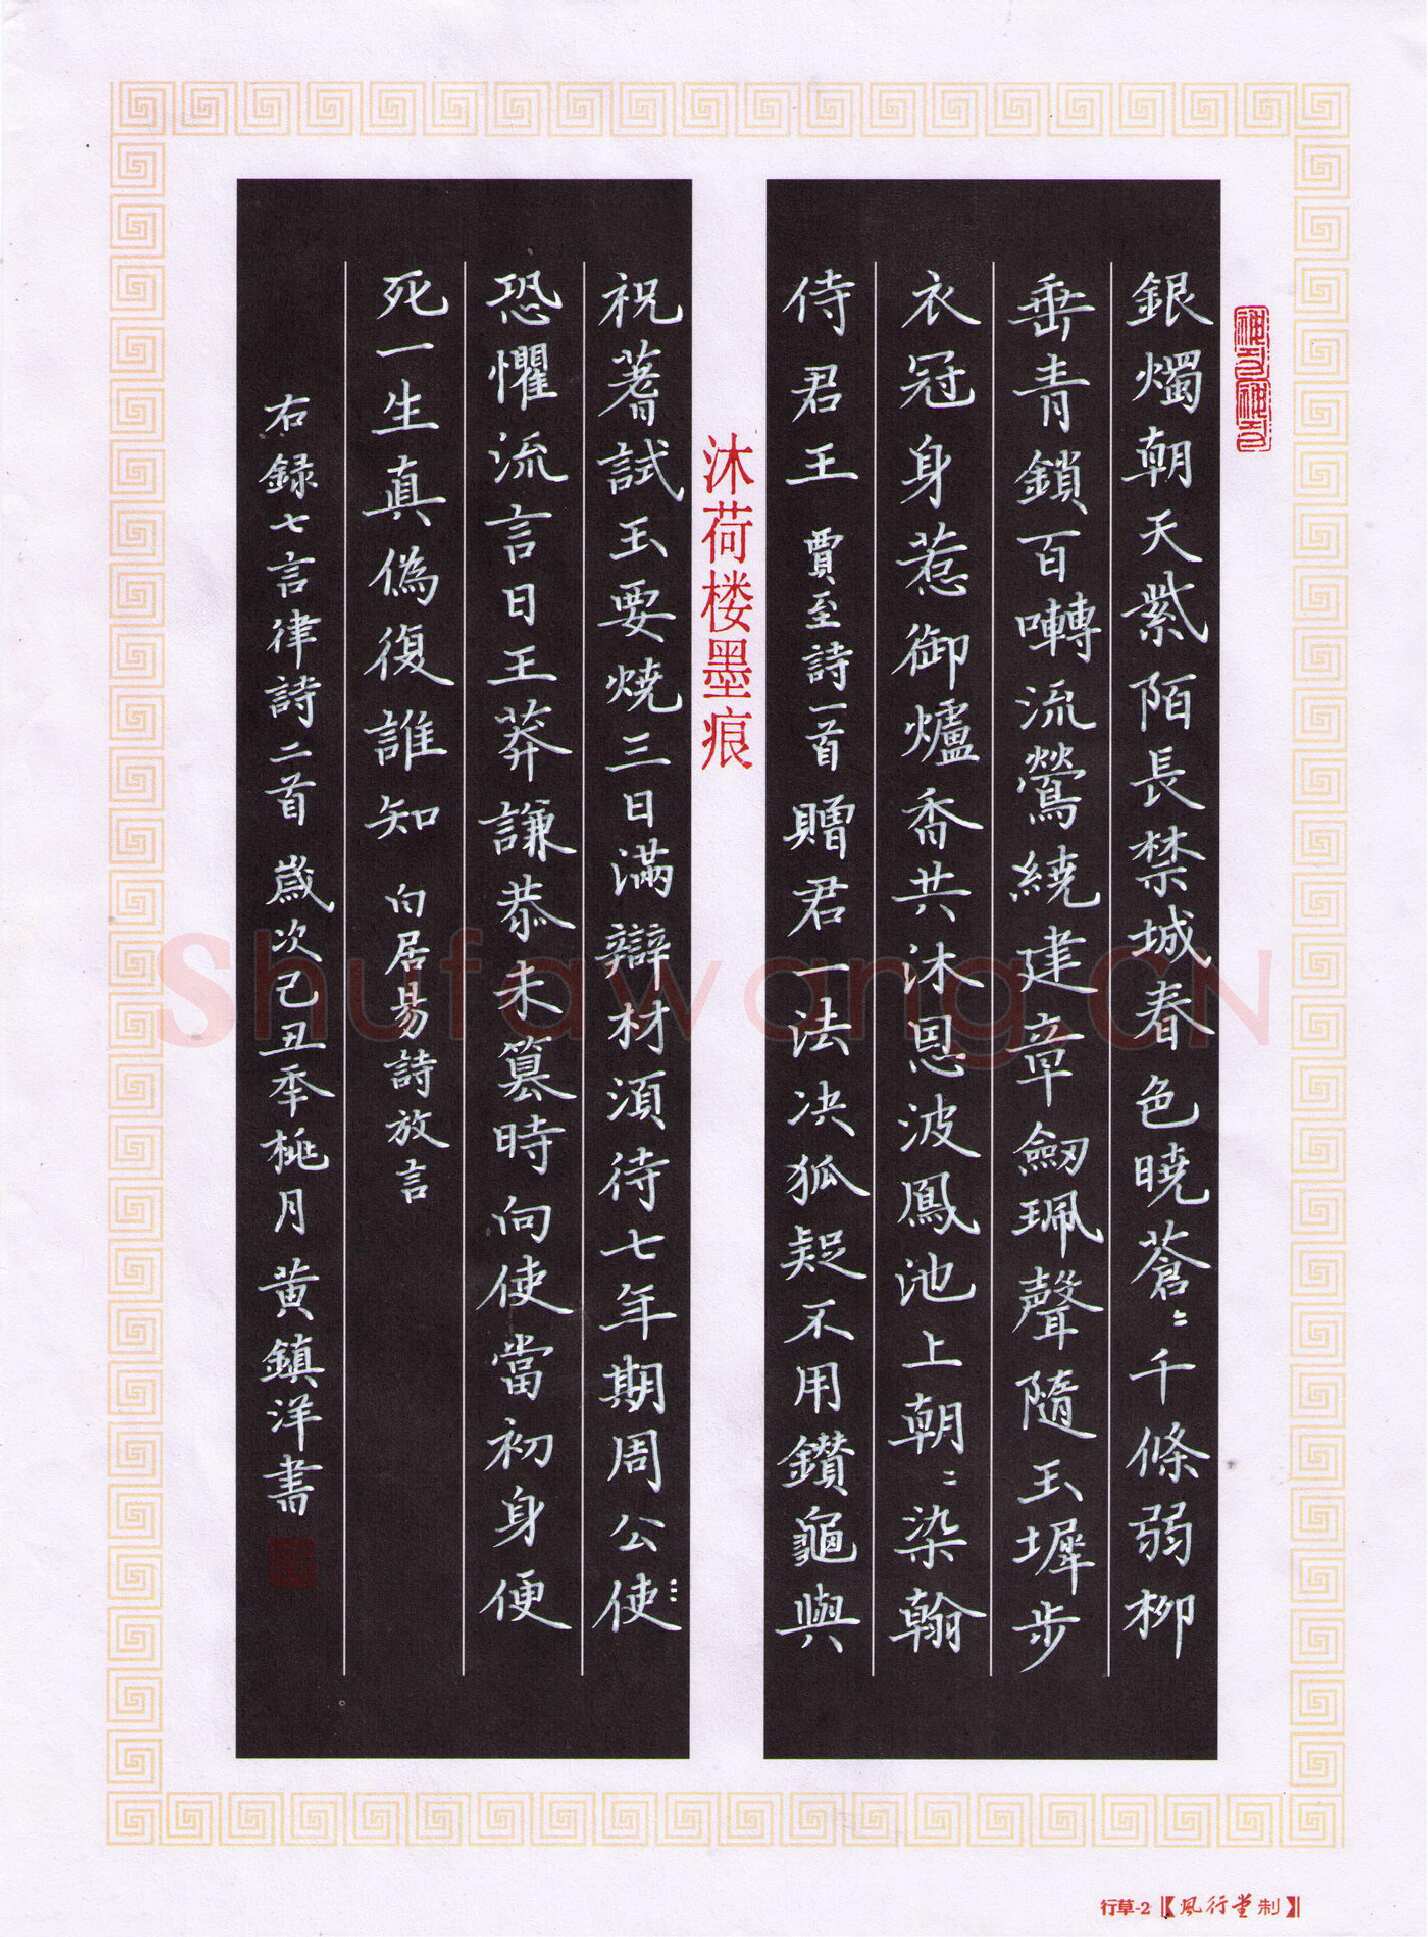 銀燭朝天紫陌長禁城春色曉蒼〻千條弱柳
垂青鎖百囀流鶯繞建章劔珮聲隨玉墀步
衣冠身惹御爐香共沐恩波鳳池上朝〻染翰
侍君王 賈至詩一首 贈君一法决狐疑不用鑽龜與
沐荷楼墨痕
祝蓍試玉要燒三日滿辯材須待七年期周公使
恐懼流言日王莽謙恭未篡時向使當初身便
死一生真偽復誰知 白居易詩放言
右録七言律詩二首 歲次己丑年桃月 黄鎮洋書
Shufawang.CN
行草-2【風行堂制】